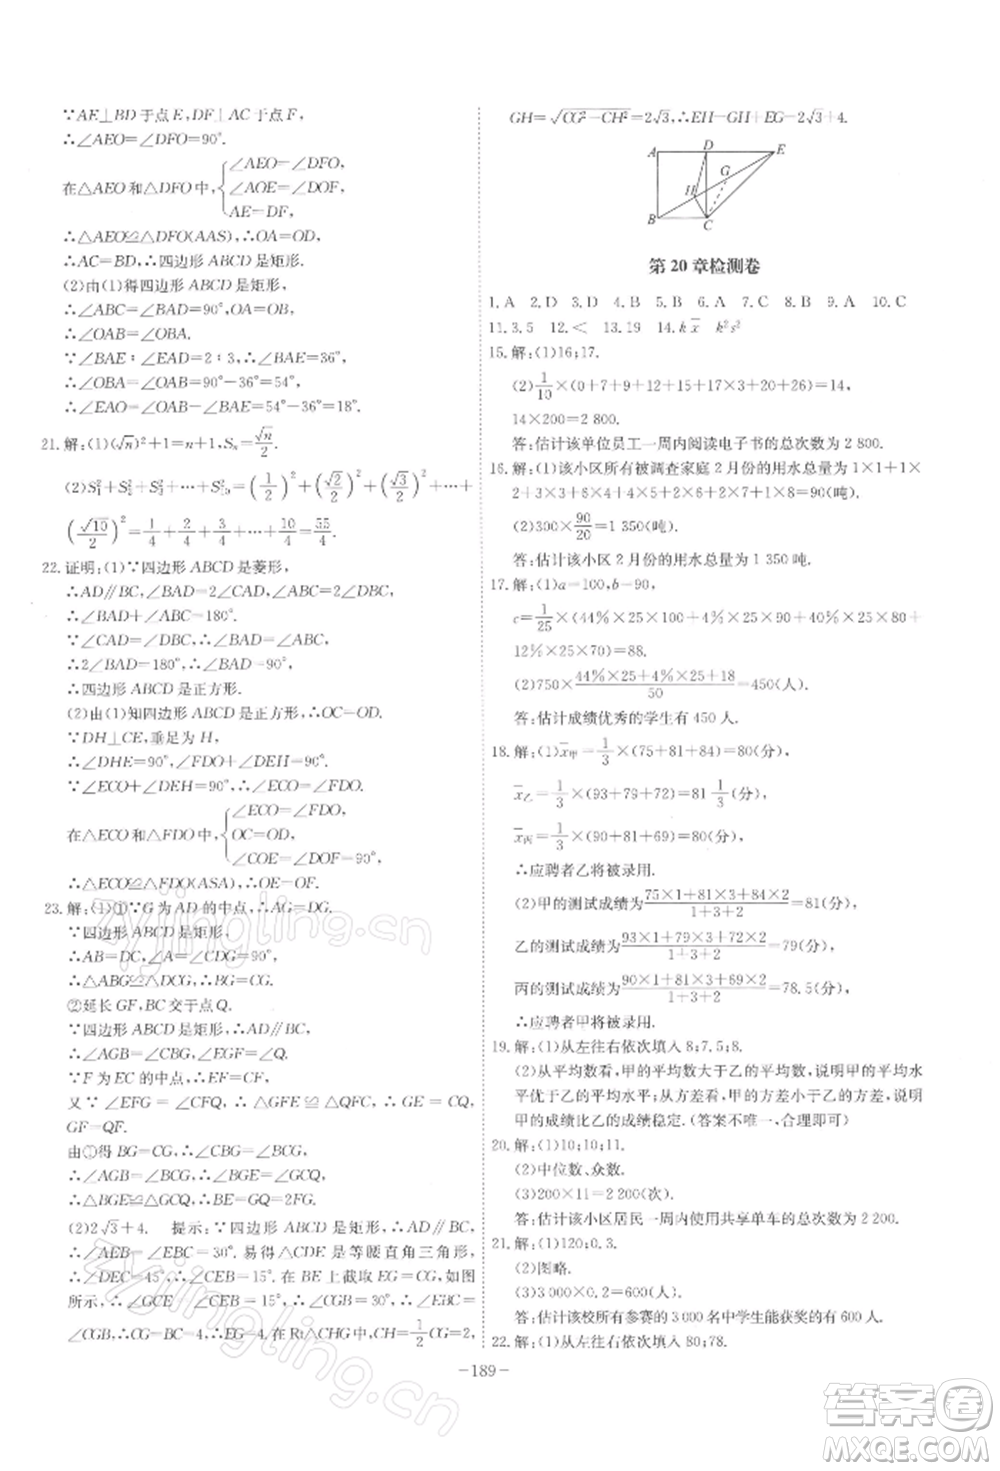 ∵AE⊥BD于点E,DF⊥AC于点F,
∴∠AEO=∠DFO=90°.
在△AEO和△DFO中,{∠AEO=∠DFO, ∠AOE=∠DOF, AE=DF,
∴△AEO≌△DFO(AAS),∴OA=OD.
∴AC=BD,∴四边形ABCD是矩形.
(2)由(1)得四边形ABCD是矩形,
∴∠ABC=∠BAD=90°,OA=OB.
∴∠OAB=∠OBA.
∵∠BAE:∠EAD=2:3,∴∠BAE=36°.
∴∠OBA=∠OAB=90°-36°=54°.
∴∠EAO=∠OAB-∠BAE=54°-36°=18°.
21.解:(1)(√n)²+1=n+1,Sₙ=√n/2.
(2)S₁²+S₂²+S₃²+…+S₁₀²=(1/2)²+(√2/2)²+(√3/2)²+…+
(√10/2)²=1/4+2/4+3/4+…+10/4=55/4.
22.证明:(1)∵四边形ABCD是菱形,
∴AD∥BC,∠BAD=2∠CAD,∠ABC=2∠DBC.
∴∠BAD+∠ABC=180°.
∵∠CAD=∠DBC,∴∠BAD=∠ABC.
∴2∠BAD=180°,∴∠BAD=90°.
∴四边形ABCD是正方形.
(2)由(1)知四边形ABCD是正方形,∴OC=OD.
∵DH⊥CE,垂足为H,
∴∠DHE=90°,∠FDO+∠DEH=90°.
∵∠ECO+∠DEH=90°,∴∠ECO=∠FDO.
在△ECO和△FDO中,{∠ECO=∠FDO, OC=OD, ∠COE=∠DOF=90°,
∴△ECO≌△FDO(ASA),∴OE=OF.
23.解:(1)①∵G为AD的中点,∴AG=DG.
∵四边形ABCD是矩形,
∴AB=DC,∠A=∠CDG=90°.
∴△ABG≌△DCG,∴BG=CG.
②延长GF,BC交于点Q.
∵四边形ABCD是矩形,∴AD∥BC,
∴∠AGB=∠CBG,∠EGF=∠CQF.
∵F为EC的中点,∴EF=CF.
又∵∠EFG=∠CFQ,∴△GFE≌△QFC,∴GE=CQ,
GF=QF.
由①得BG=CG,∴∠CBG=∠BCG.
∵AD∥BC,∴∠AGB=∠BCG.
∴△BGE≌△GCQ,∴BE=GQ=2FG.
(2)2√3+4. 提示:∵四边形ABCD是矩形,∴AD∥BC,
∴∠AEB=∠EBC=15°.易得△CDE是等腰直角三角形,
∴∠DEC=45°,∴∠CEB=15°.在BE上截取EG=CG,如图
所示,∴∠GCE=∠CEB=15°,∴∠CGB=30°,∴∠EBC=
∠CGB,∴CG=BC=4,∴EG=4.在Rt△CHG中,CH=1/2CG=2,
GH=√(CG²-CH²)=2√3,∴EH=GH+EG=2√3+4.
A D E
G
H
B C
第20章检测卷
1.A 2.D 3.D 4.B 5.B 6.A 7.C 8.B 9.A 10.C
11.3.5 12.< 13.19 14.kx̄ k²s²
15.解:(1)16;17.
(2)1/10×(0+7+9+12+15+17×3+20+26)=14,
14×200=2 800.
答:估计该单位员工一周内阅读电子书的总次数为2 800.
16.解:(1)该小区所有被调查家庭2月份的用水总量为1×1+1×
2+3×3+6×4+4×5+2×6+2×7+1×8=90(吨).
(2)300×90/20=1 350(吨).
答:估计该小区2月份的用水总量为1 350吨.
17.解:(1)a=100,b=90,
c=1/25×(44%×25×100+4%×25×90+40%×25×80+
12%×25×70)=88.
(2)750×(44%×25+4%×25+18)/50=450(人).
答:估计成绩优秀的学生有450人.
18.解:(1)x̄甲=1/3×(75+81+84)=80(分),
x̄乙=1/3×(93+79+72)=81 1/3(分),
x̄丙=1/3×(90+81+69)=80(分).
∴应聘者乙将被录用.
(2)甲的测试成绩为(75×1+81×3+84×2)/(1+3+2)=81(分),
乙的测试成绩为(93×1+79×3+72×2)/(1+3+2)=79(分),
丙的测试成绩为(90×1+81×3+69×2)/(1+3+2)=78.5(分),
∴应聘者甲将被录用.
19.解:(1)从左往右依次填入8;7.5;8.
(2)从平均数看,甲的平均数大于乙的平均数,说明甲的平均水
平优于乙的平均水平;从方差看,甲的方差小于乙的方差,说明
甲的成绩比乙的成绩稳定.(答案不唯一,合理即可)
20.解:(1)10;10;11.
(2)中位数、众数.
(3)200×11=2 200(次).
答:估计该小区居民一周内使用共享单车的总次数为2 200.
21.解:(1)120;0.3.
(2)图略.
(3)3 000×0.2=600(人).
答:估计该校所有参赛的3 000名中学生能获奖的有600人.
22.解:(1)从左往右依次填入80;78.
-189-
zyjingling.cn
zyjingling.cn
答案圈
MXQE.COM